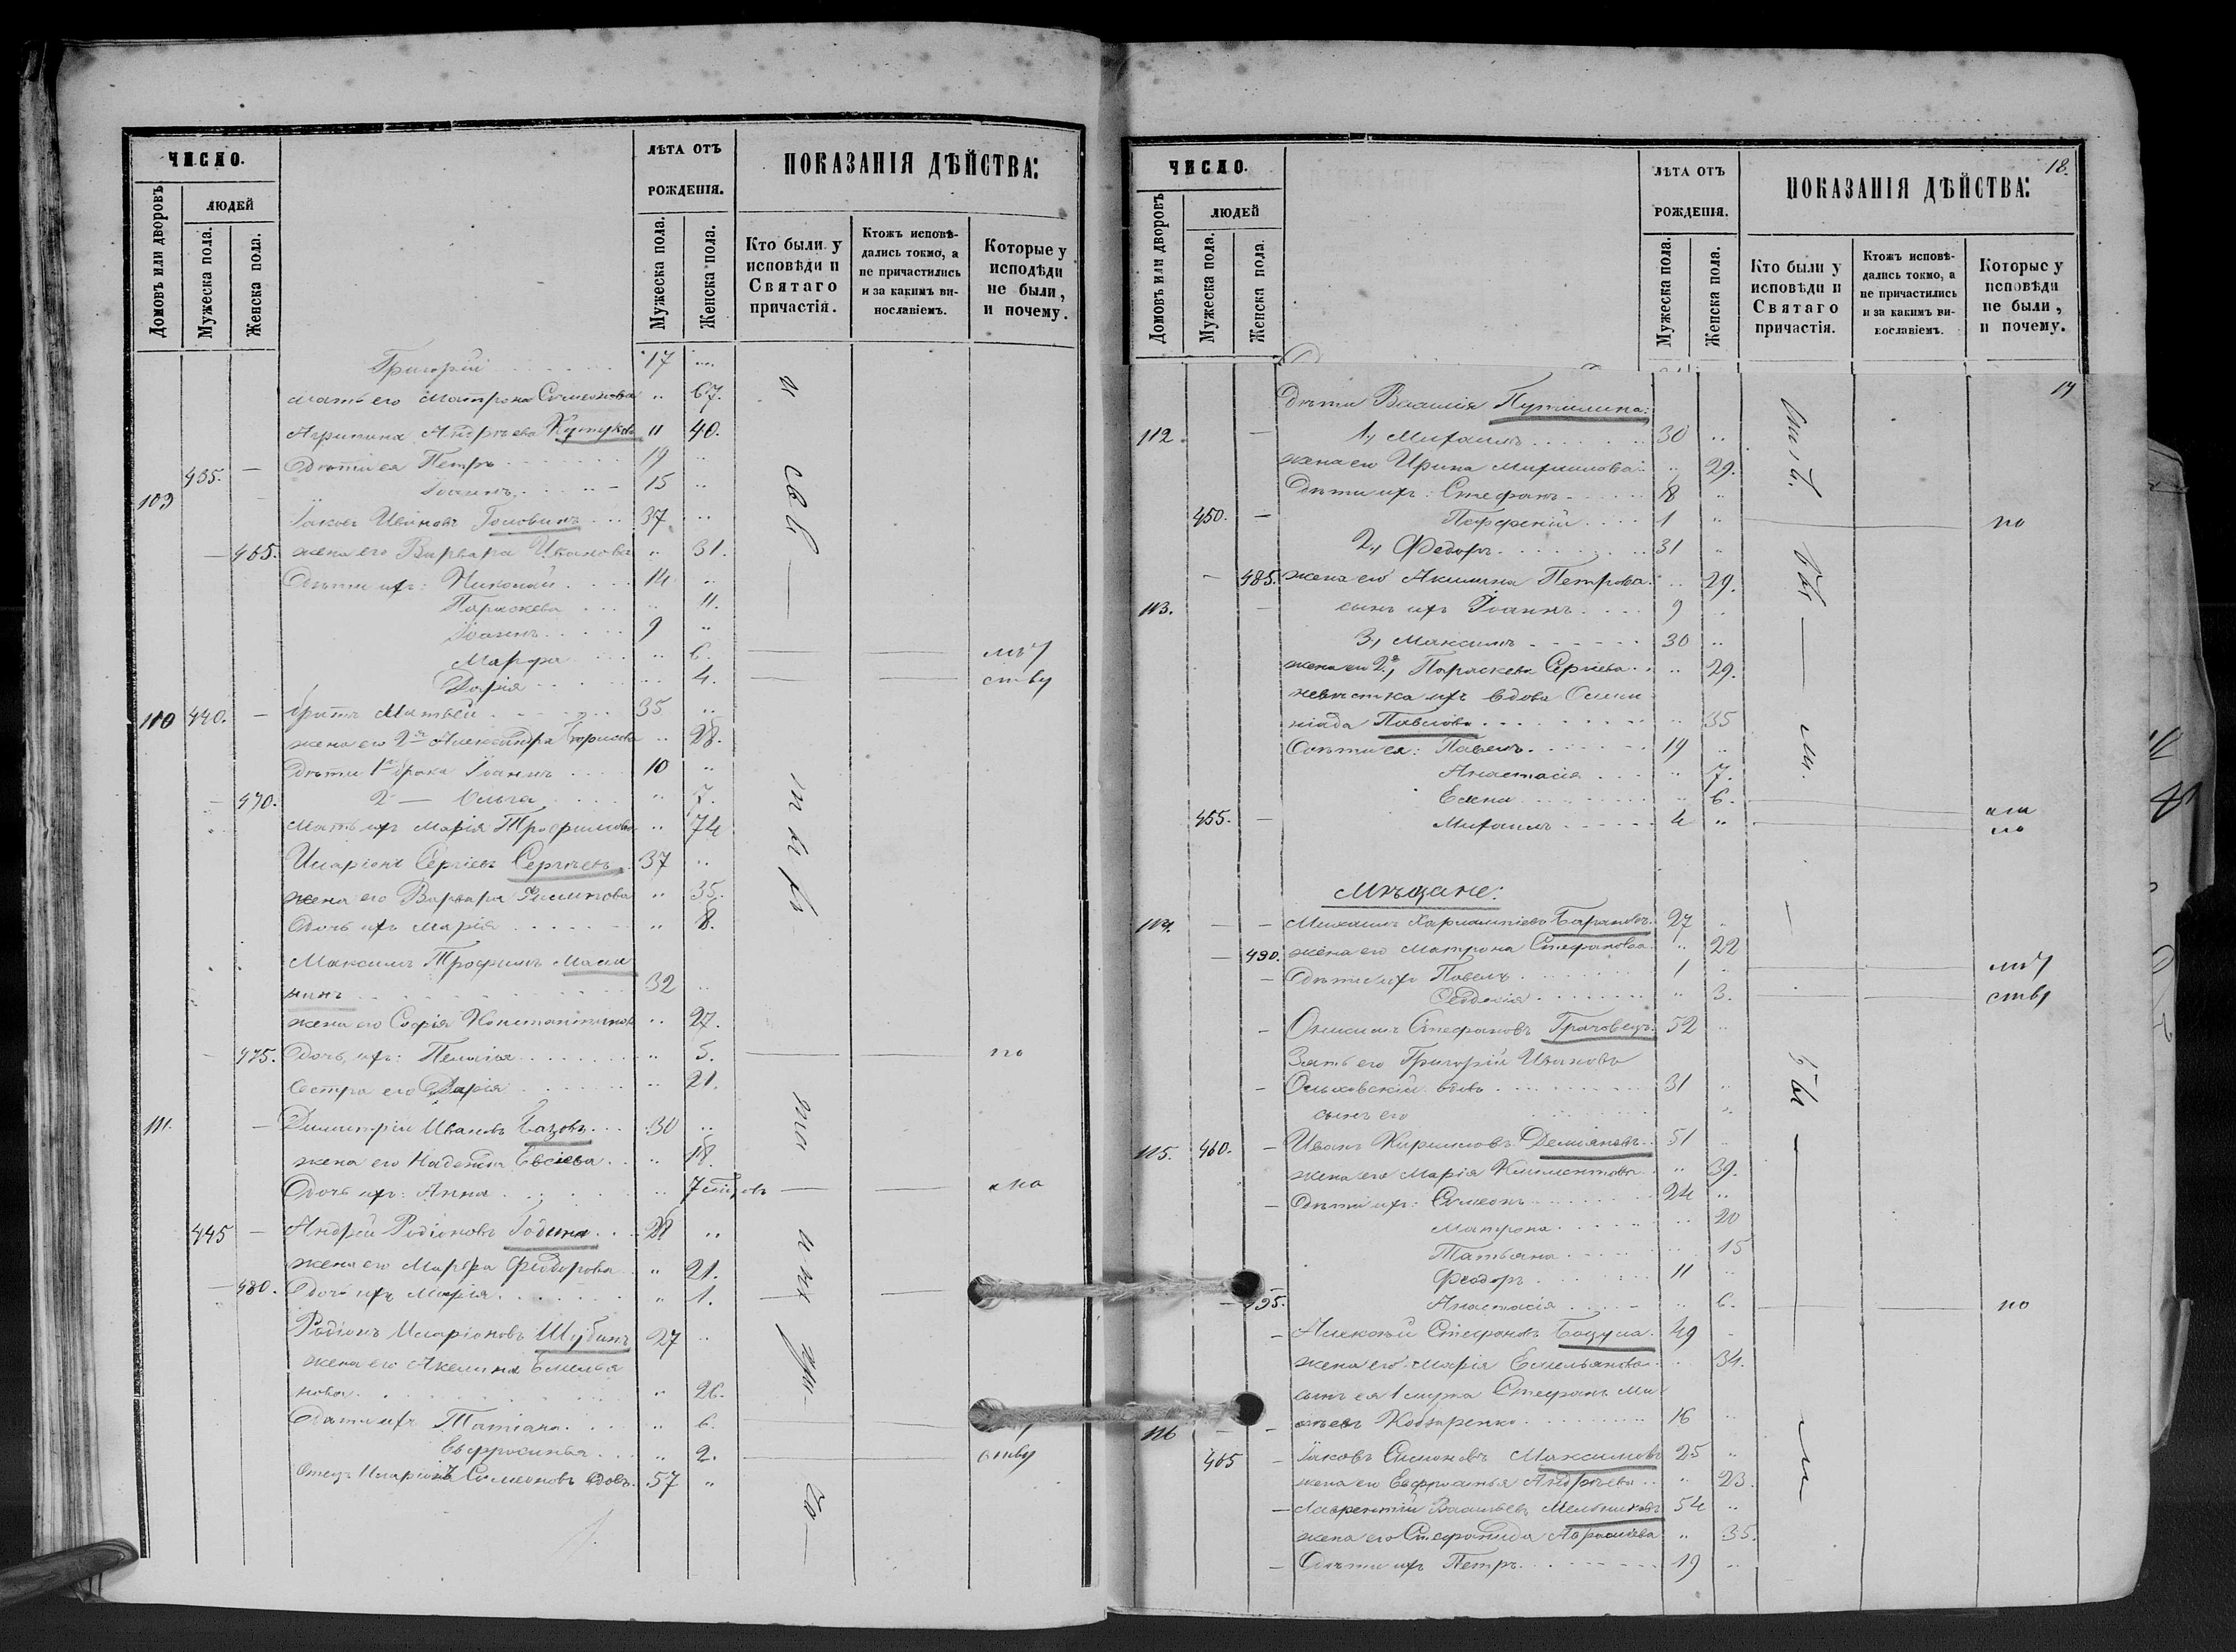 ЧИСЛО.
ЛѢТА ОТЪ РОЖДЕНІЯ.
ПОКАЗАНІЯ ДѢЙСТВА:
Домовъ или дворовъ
ЛЮДЕЙ
Мужеска пола.
Женска пола.
Мужеска пола.
Женска пола.
Кто были у исповѣди и Святаго причастія.
Ктожъ исповѣдались токмо, а не причастились и за какимъ винославіемъ.
Которые у исподѣди не были, и почему.
Григорій 17 "
мать его Матрона Симеонова " 67.
Агрипина Андрѣева " 40.
435. — Дѣти ея Петръ 19 "
Іоаннъ 15 "
109
Іаковъ Ивановъ Головинъ 37 "
— 465. жена его Варвара Иванова " 31.
Дѣти ихъ: Николай 14 "
Параскева " 11.
Іоаннъ 9 "
Марѳа " 6. — — мъ
Дарія " 4. — — ству
110 440. — братъ Матвей 35 "
жена его 2я Александра Борисова " 28.
Дѣти 1го брака Іоаннъ 10 "
— 470. 2 — Ольга " 7.
Мать ихъ Марія Трофимова " 74
Иларіонъ Сергіевъ Сергѣевъ 37 "
жена его Варвара Филипова " 35.
Дочь ихъ Марія " 8.
Максимъ Трофимъ
нинъ 32 "
жена его Софія Константинова " 27.
— 475. Дочь ихъ: Пелагія " 5. — по
Сестра его Дарія " 21.
111. — Димитрій Ивановъ 30 "
жена его Надежда Евсіева " 18.
Дочь ихъ: Анна " 7 — —
445 — Андрей Родіоновъ Година 28 "
жена его Марѳа Фёдорова " 21.
— 480. Дочь ихъ Марія " 1. — —
Родіонъ Иларіоновъ Шубинъ 27 "
жена его Акелина Емелья
нова " 26.
Дѣти ихъ Татіана " 6. — —
Евфросинья " 2. — — ству
Отецъ Иларіонъ Симеоновъ вдовъ 57 "
18.
ЧИСЛО.
ЛѢТА ОТЪ РОЖДЕНІЯ.
ПОКАЗАНІЯ ДѢЙСТВА:
Домовъ или дворовъ
ЛЮДЕЙ
Мужеска пола.
Женска пола.
Мужеска пола.
Женска пола.
Кто были у исповѣди и Святаго причастія.
Ктожъ исповѣдались токмо, а не причастились и за какимъ викославіемъ.
Которые у исповѣди не были, и почему.
17
Дѣти Василія Путилина:
112. — 1., Михаилъ 30 "
жена его Ирина Михаилова " 29.
Дѣти ихъ: Стефанъ 8 "
450. — Порфирій 1 " — по
2., Федоръ 31 "
— 485. жена его Акилина Петрова " 29.
113. — сынъ ихъ Іоаннъ 9 "
3., Максимъ 30 "
жена его 2я, Параскева Сергіева " 29.
невѣстка ихъ вдова Олим
піада Павлова " 35
Дѣти ея: Павелъ 19 "
Анастасія " 7.
Елена " 6. —
455. — Михаилъ 4 " —
Мѣщане:
114. — — Михаилъ Харлампіевъ Барановъ 27 "
— 490. жена его Матрона Стефанова " 22
— Дѣти ихъ Павелъ 1 " —
Евдокія " 3. — — ству
— Онисимъ Стефановъ 52 "
Зять его Григорій Ивановъ
— Ольховскій вдовъ 31 "
сынъ его "
115. 460. — Иванъ Кириловъ Деміановъ 51 "
жена его Марія Климентова " 39.
— Дѣти ихъ: Симеонъ 24 "
Матрона " 20
Татьяна " 15
Феодоръ 11 "
— 495. Анастасія " 6. — по
— Алексѣй Стефановъ 49 "
жена его Марія Емельянова " 34.
сынъ ея 1 мужа Стефанъ Ми
хѣевъ 16 "
116 — —
465 — Іаковъ Симоновъ Максимовъ 25 "
жена его Евфросинья Андрѣева " 23.
— Лаврентій Васильевъ Мельниковъ 54 "
жена его Стефанида " 35.
— Дѣти ихъ Петръ 19 "